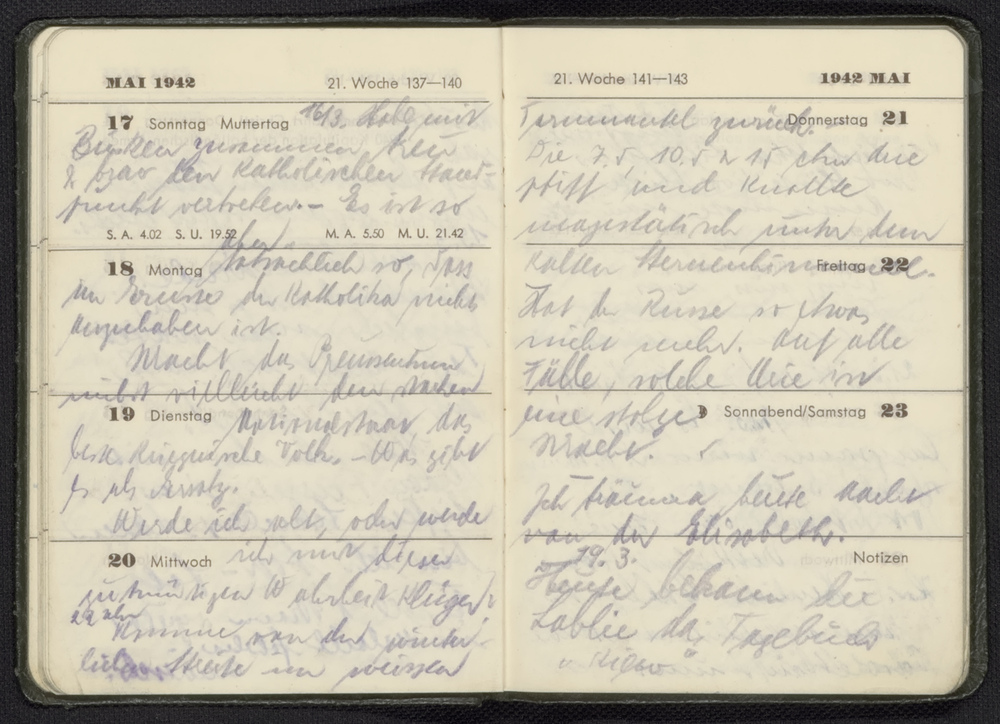 MAI 1942 21. Woche 137—140
17 Sonntag Muttertag 18/3. Habe mit
zusammen treu
& brav den Katholischen Stand-
punkt vertreten. – Es ist so
S. A. 4.02 S. U. 19.52 M. A. 5.50 M. U. 21.42
aber
18 Montag tatsächlich so, dass
im Grunde den Katholika nichts
anzuhaben ist.
Macht das Preussentum
nicht vielleicht den
19 Dienstag Nationalstaat das
beste Volk. – Was gibt
es als Ersatz.
Werde ich alt, oder werde
20 Mittwoch ich mit dieser
Wahrheit klüger?
22 Uhr
Komme von der winter-
lichen im weissen
21. Woche 141—143 1942 MAI
Tarnmantel zurück. Donnerstag 21
Die 7.5 10.5 & 15 cm die
pfiff und knallte
majestätisch unter dem
kalten Sternenhimmel. Freitag 22
Hat der Russe so etwas
nicht mehr. Auf alle
Fälle, solche ist
eine stolze Sonnabend/Samstag 23
Macht.
Ich träumte heute Nacht
von der Elisabeth.
19. 3. Notizen
Heute bekam die
das Tagebuch